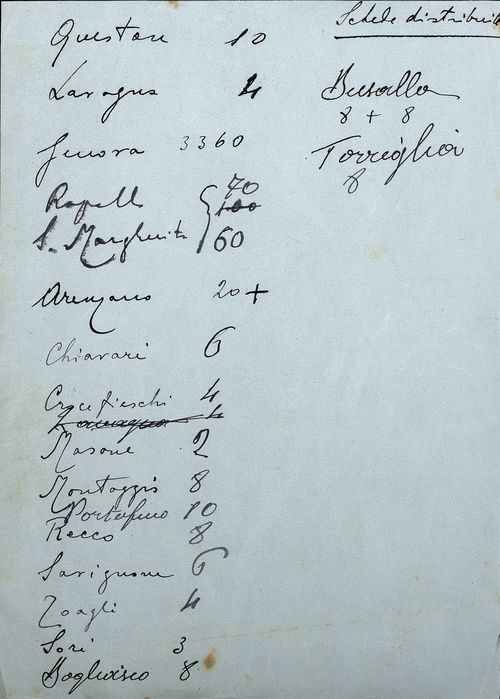 Schede distribuite
Questore 10
Lavagna 4
Genova 3360
Rapallo 70
100
S. Margherita 60
Arenzano 20 +
Chiavari 6
Crocefieschi 4
Lavagna 4
Masone 2
Montoggio 8
Portofino 10
Recco 8
Savignone 6
Zoagli 4
Sori 3
Bogliasco 8
Busalla
8 + 8
Torriglia
8